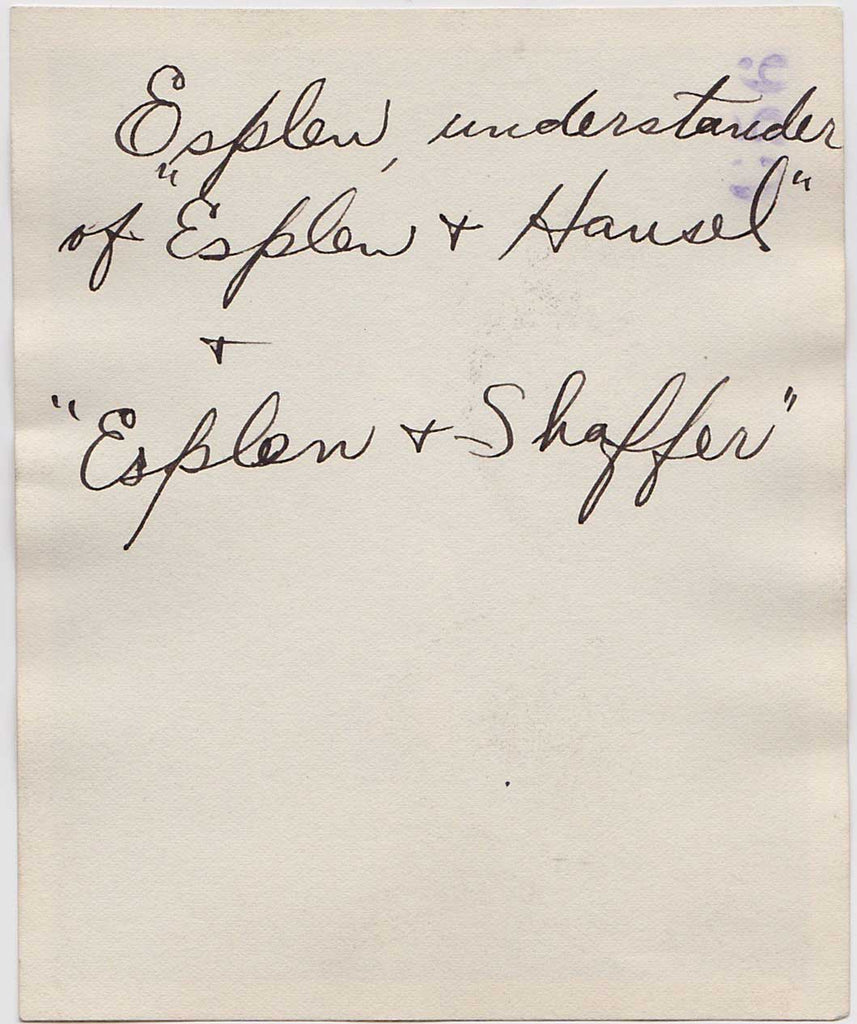 Esplen, understander
of "Esplen + Hansel"
+
"Esplen + Shaffer"